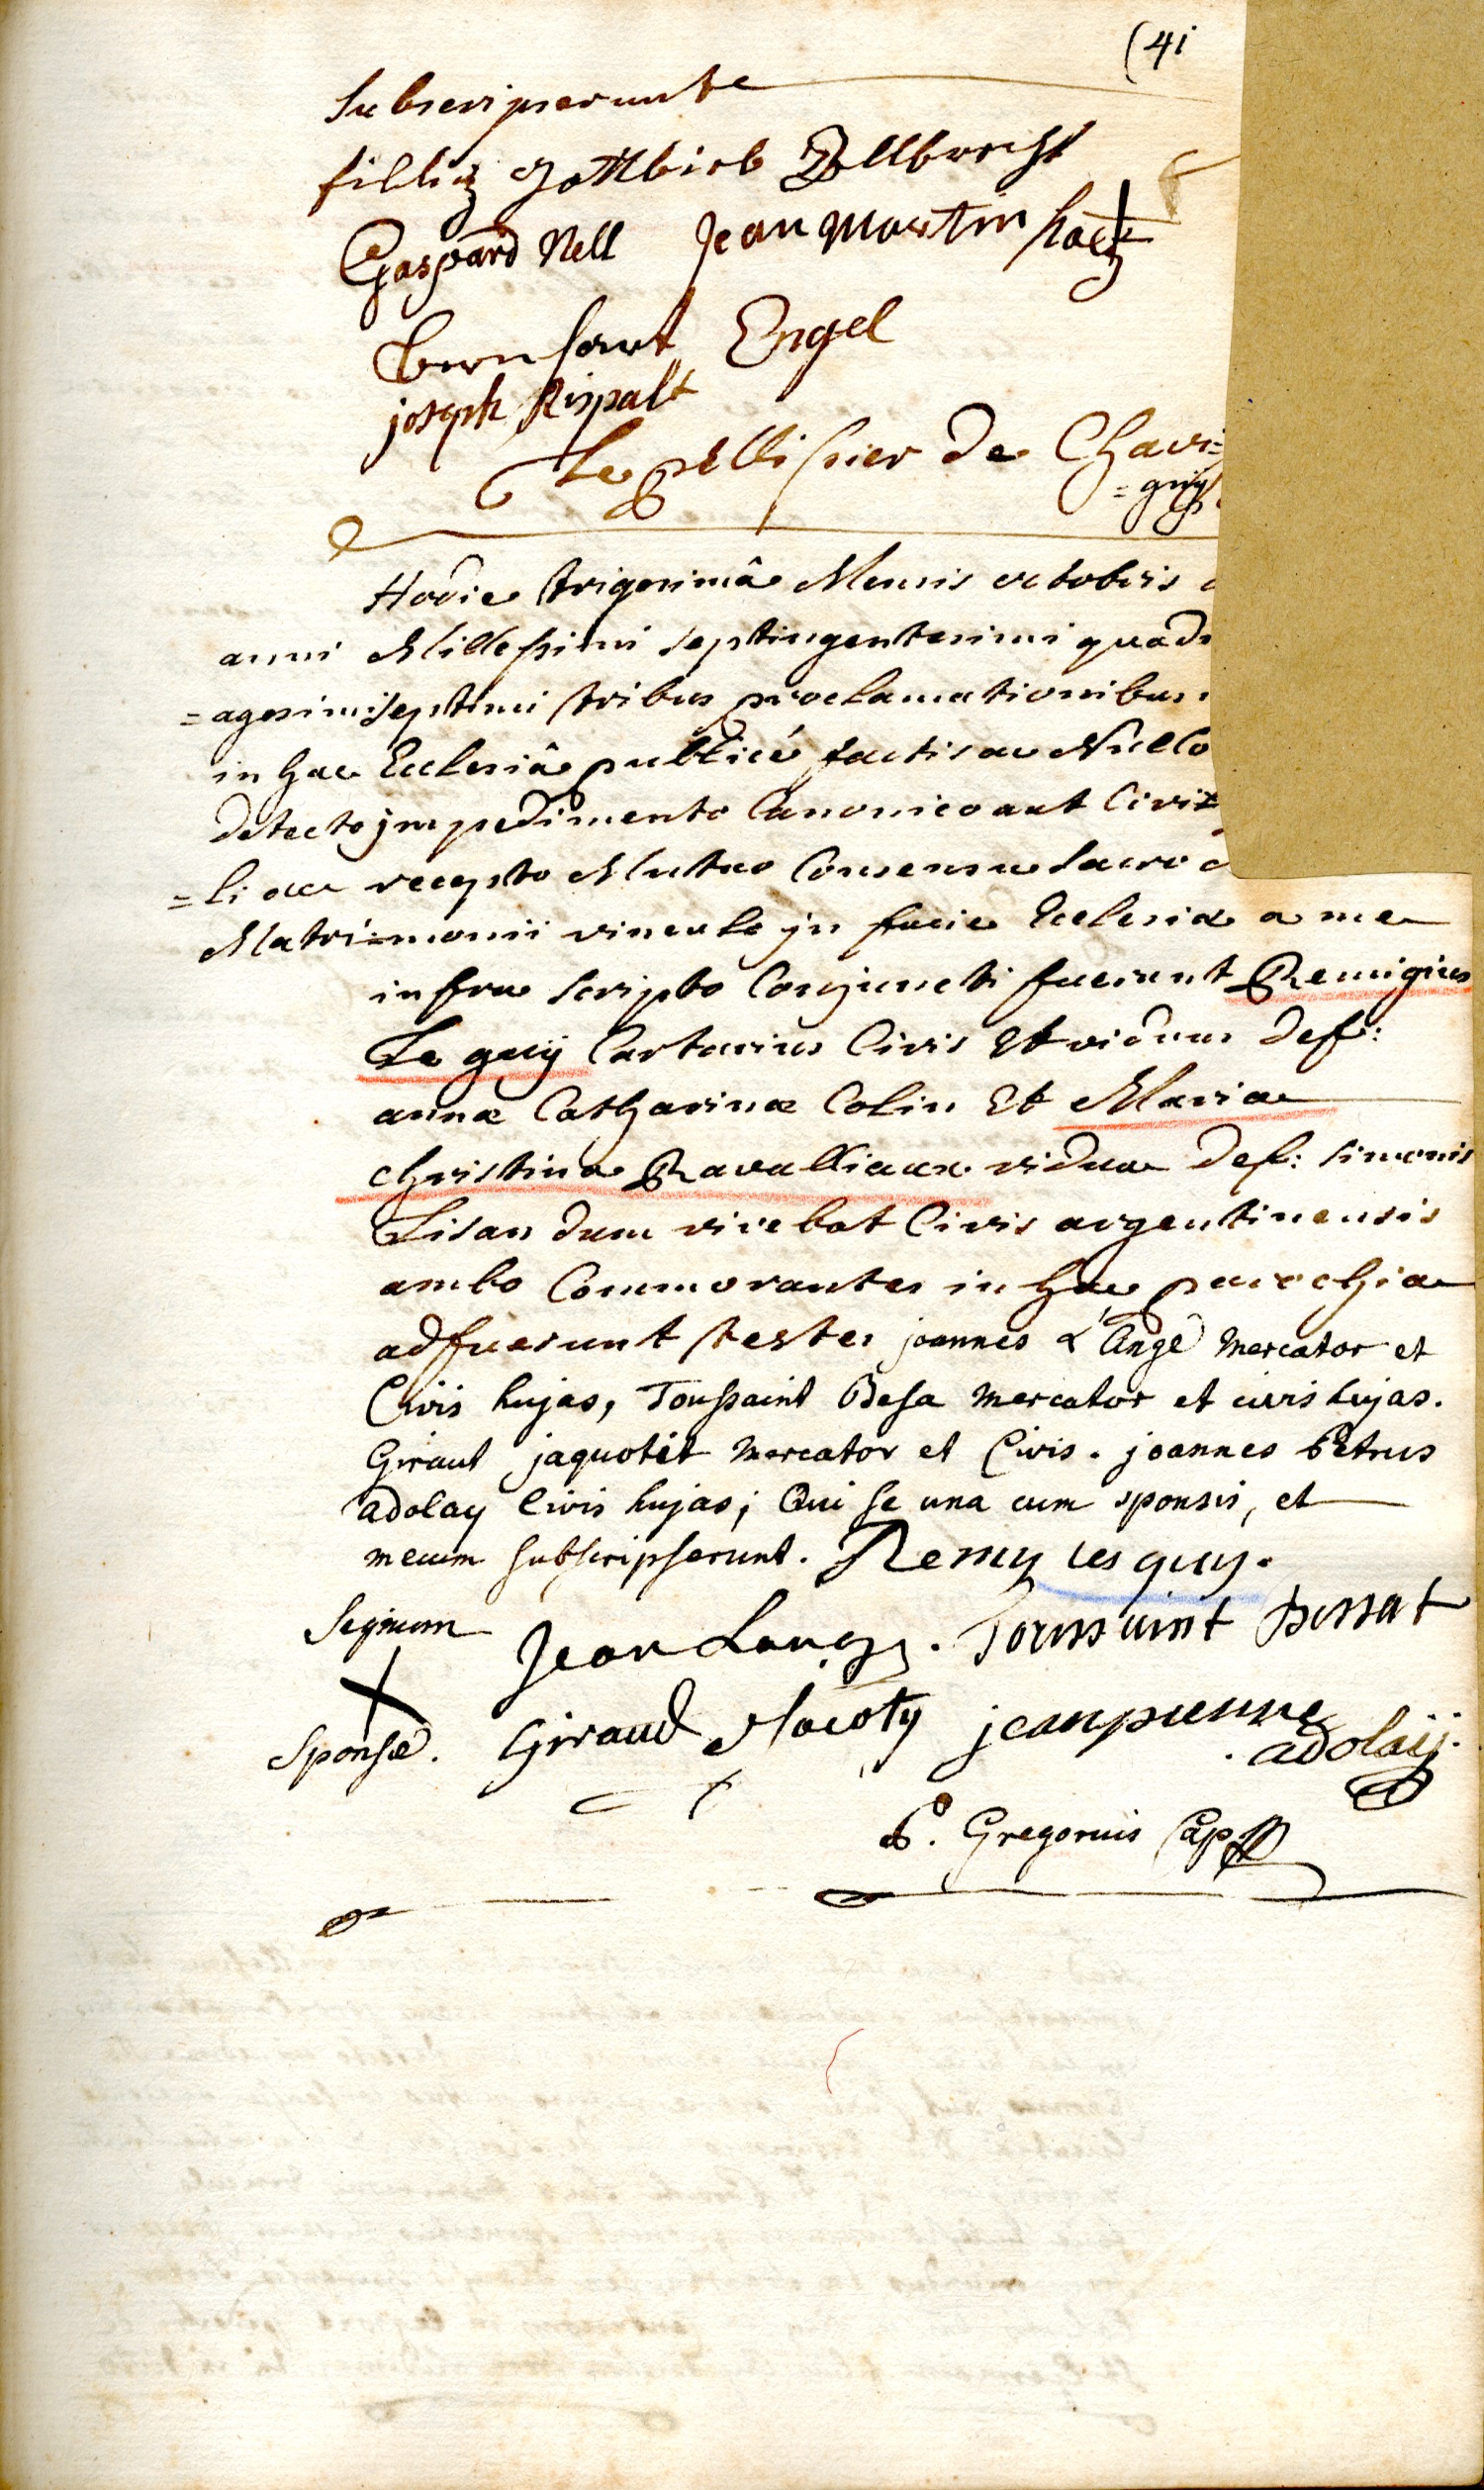 (41
Subscripserunt
fillig gottlieb Vollbrecht
Gaspard Nell Jean Martin
bernhart Engel
joseph Rispalt
Le pellissier de Chavi=
=gny
Hodie trigesimâ Mensis octobris
anni Millessimi septingentesimi quadr
=agesimi septimi tribus proclamationibus
in hac Ecclesiâ publicé factis ac Nullo
detecto jmpedimento Canonico aut Civi=
=li ac recepto Mutuo Consensu Sacro
Matri=monii vinculo jn facie Ecclesiæ a me
infra scripto Conjuncti fuerunt Remigius
Le guij Cartarius Civis Et viduus def:
annæ Catharinæ Colin Et Maria
christina Ravalliaux vidua def: simonis
Lisan dum vivebat Civis argentinensis
ambo Commorantes in hac parochia
adfuerunt testes joannes L'Ange mercator et
Civis hujas, Toussaint Besa mercator et civis hujas.
Giraut jaquotét mercator et Civis. joannes Petrus
adolay Civis hujas; Qui se una cum sponsis, et
mecum subscripserunt. Remy les guy.
Segnum Jean Lange. Toussaint Bessat
X
Sponsæ. Giraud Jacoty jeanpierre
. adolaij.
P. Gregorius Cap